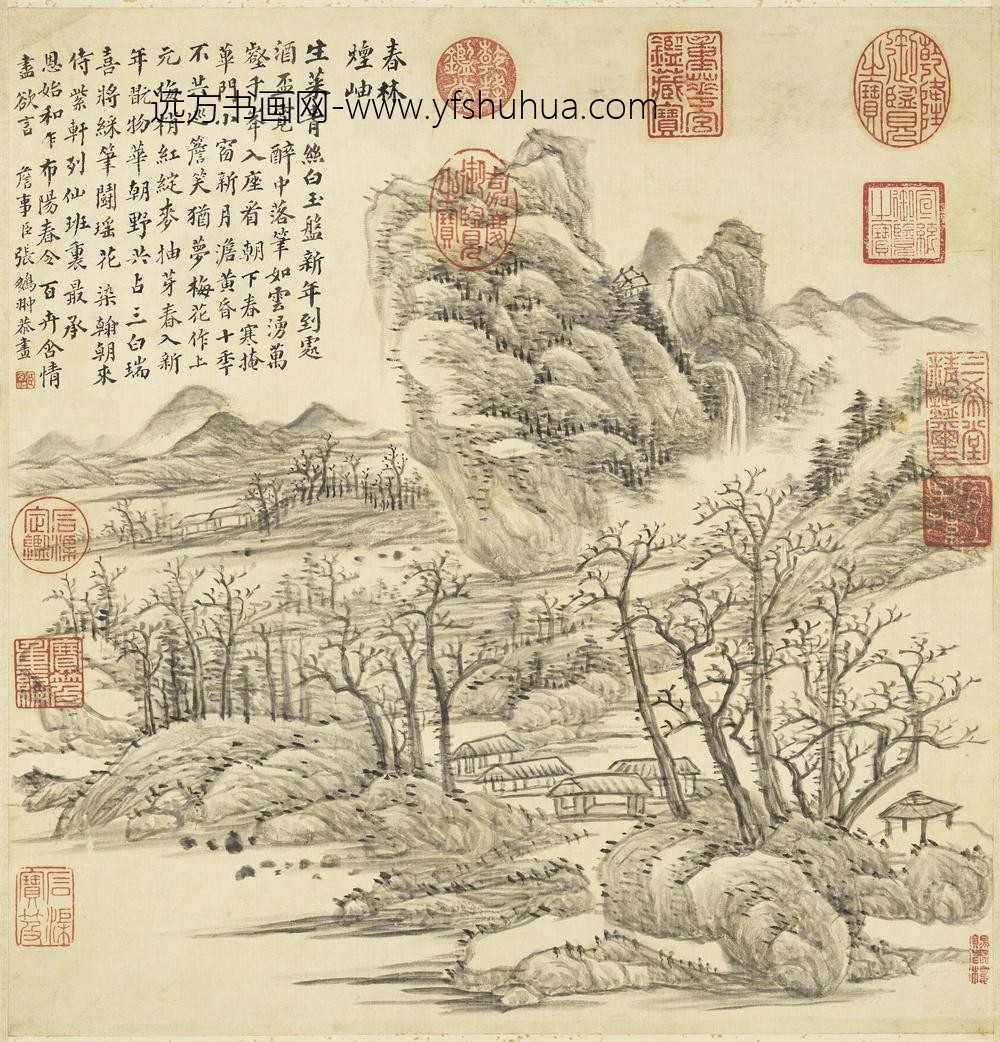 春林
煙岫
生菜青絲白玉盤新年到處
酒盃寬醉中落筆如雲湧萬
壑千峯入座看朝下春寒掩
華門小窗新月澹黃昏十年
不共巡簷笑猶夢梅花作上
元梅梢紅綻麥抽芽春入新
年翫物華朝野共占三白瑞
喜將綵筆鬪瑶花染翰朝來
侍紫軒列仙班裏最承
恩始和乍布陽春令百卉含情
盡欲言
詹事臣張鵬翀恭畫
远方书画网-www.yfshuhua.com
乾隆御覽之寶
乾隆鑑賞
重華宮鑑藏寶
嘉慶御覽之寶
宣統御覽之寶
三希堂精鑑璽
宜子孫
石渠定鑑
寶笈重編
石渠寶笈